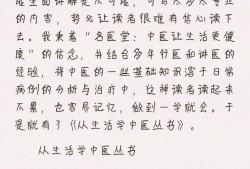 的内容，努力让读者很难有信心读下
去。我秉着“名医堂：中医让生活更健
康”的信念，并结合多年行医和讲医的
经验，将中医的一些基础知识溶于日常
病例的分析与治疗中，这样读者读起来
不累，也容易记忆，做到一学就会。于
是就有了《从生活学中医丛书》。
从生活学中医丛书